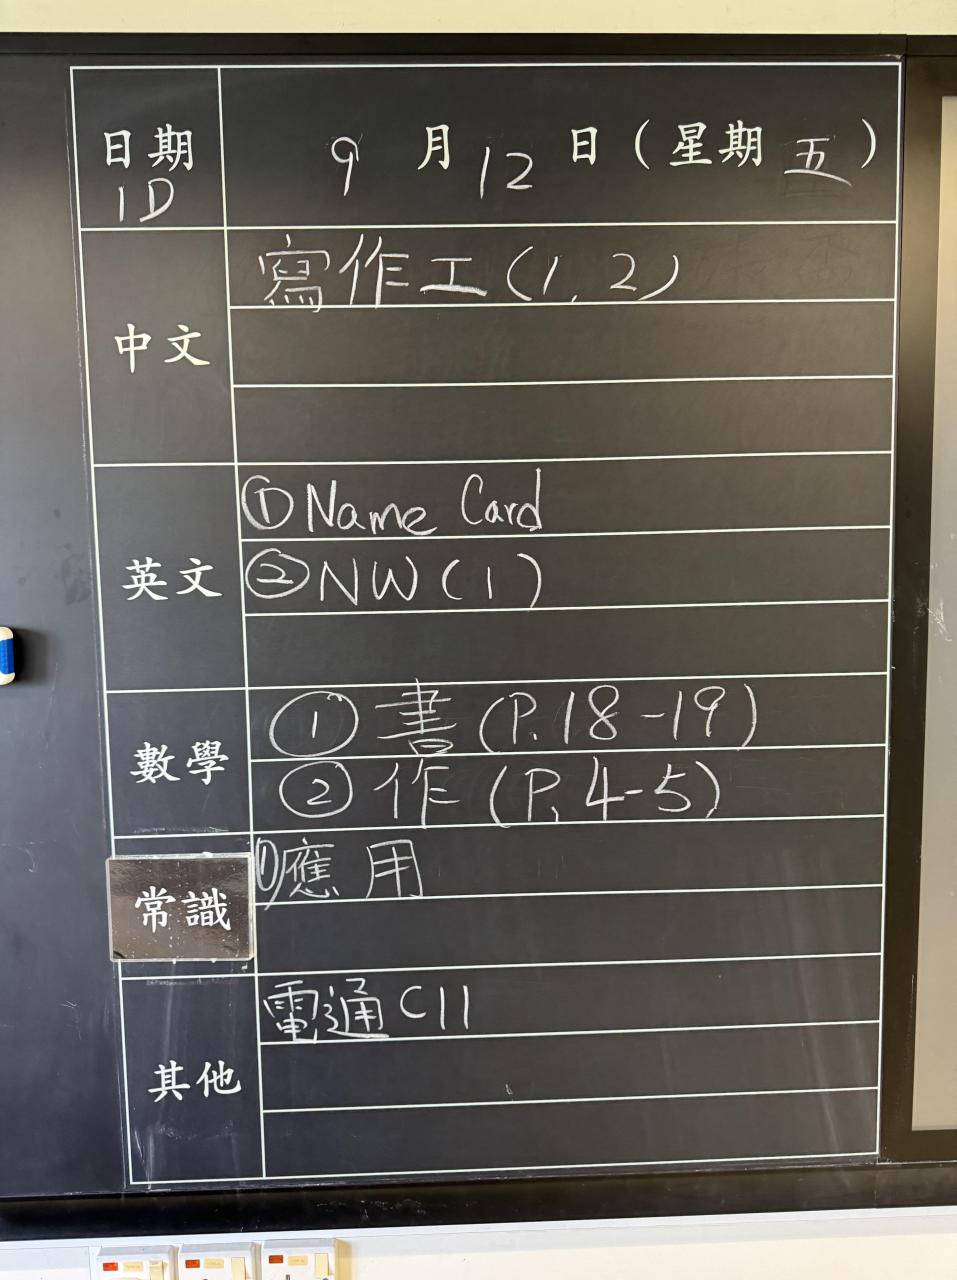 日期 9 月 12 日 ( 星期 五 )
1D
中文 寫作工 (1, 2)
英文 ① Name Card
② NW (1)
數學 ① 書 (P.18-19)
② 作 (P.4-5)
常識 ① 應用
其他 電通 C11